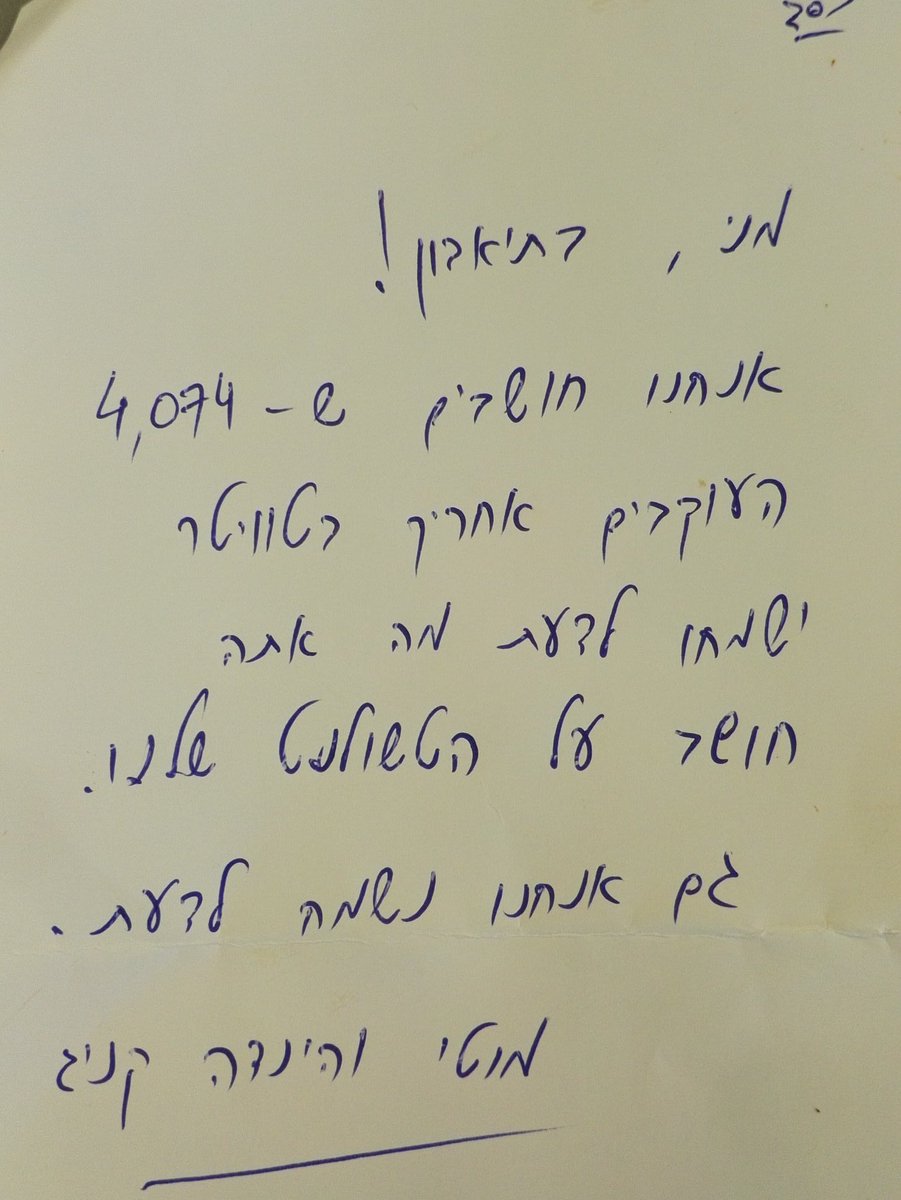 בס"ד
מני, בתיאבון!
אנחנו חושבים ש-4,074
העוקבים אחריך בטוויטר
ישמחו לדעת מה אתה
חושב על הטשולנט שלנו.
גם אנחנו נשמח לדעת.
מוטי והינדה קניג